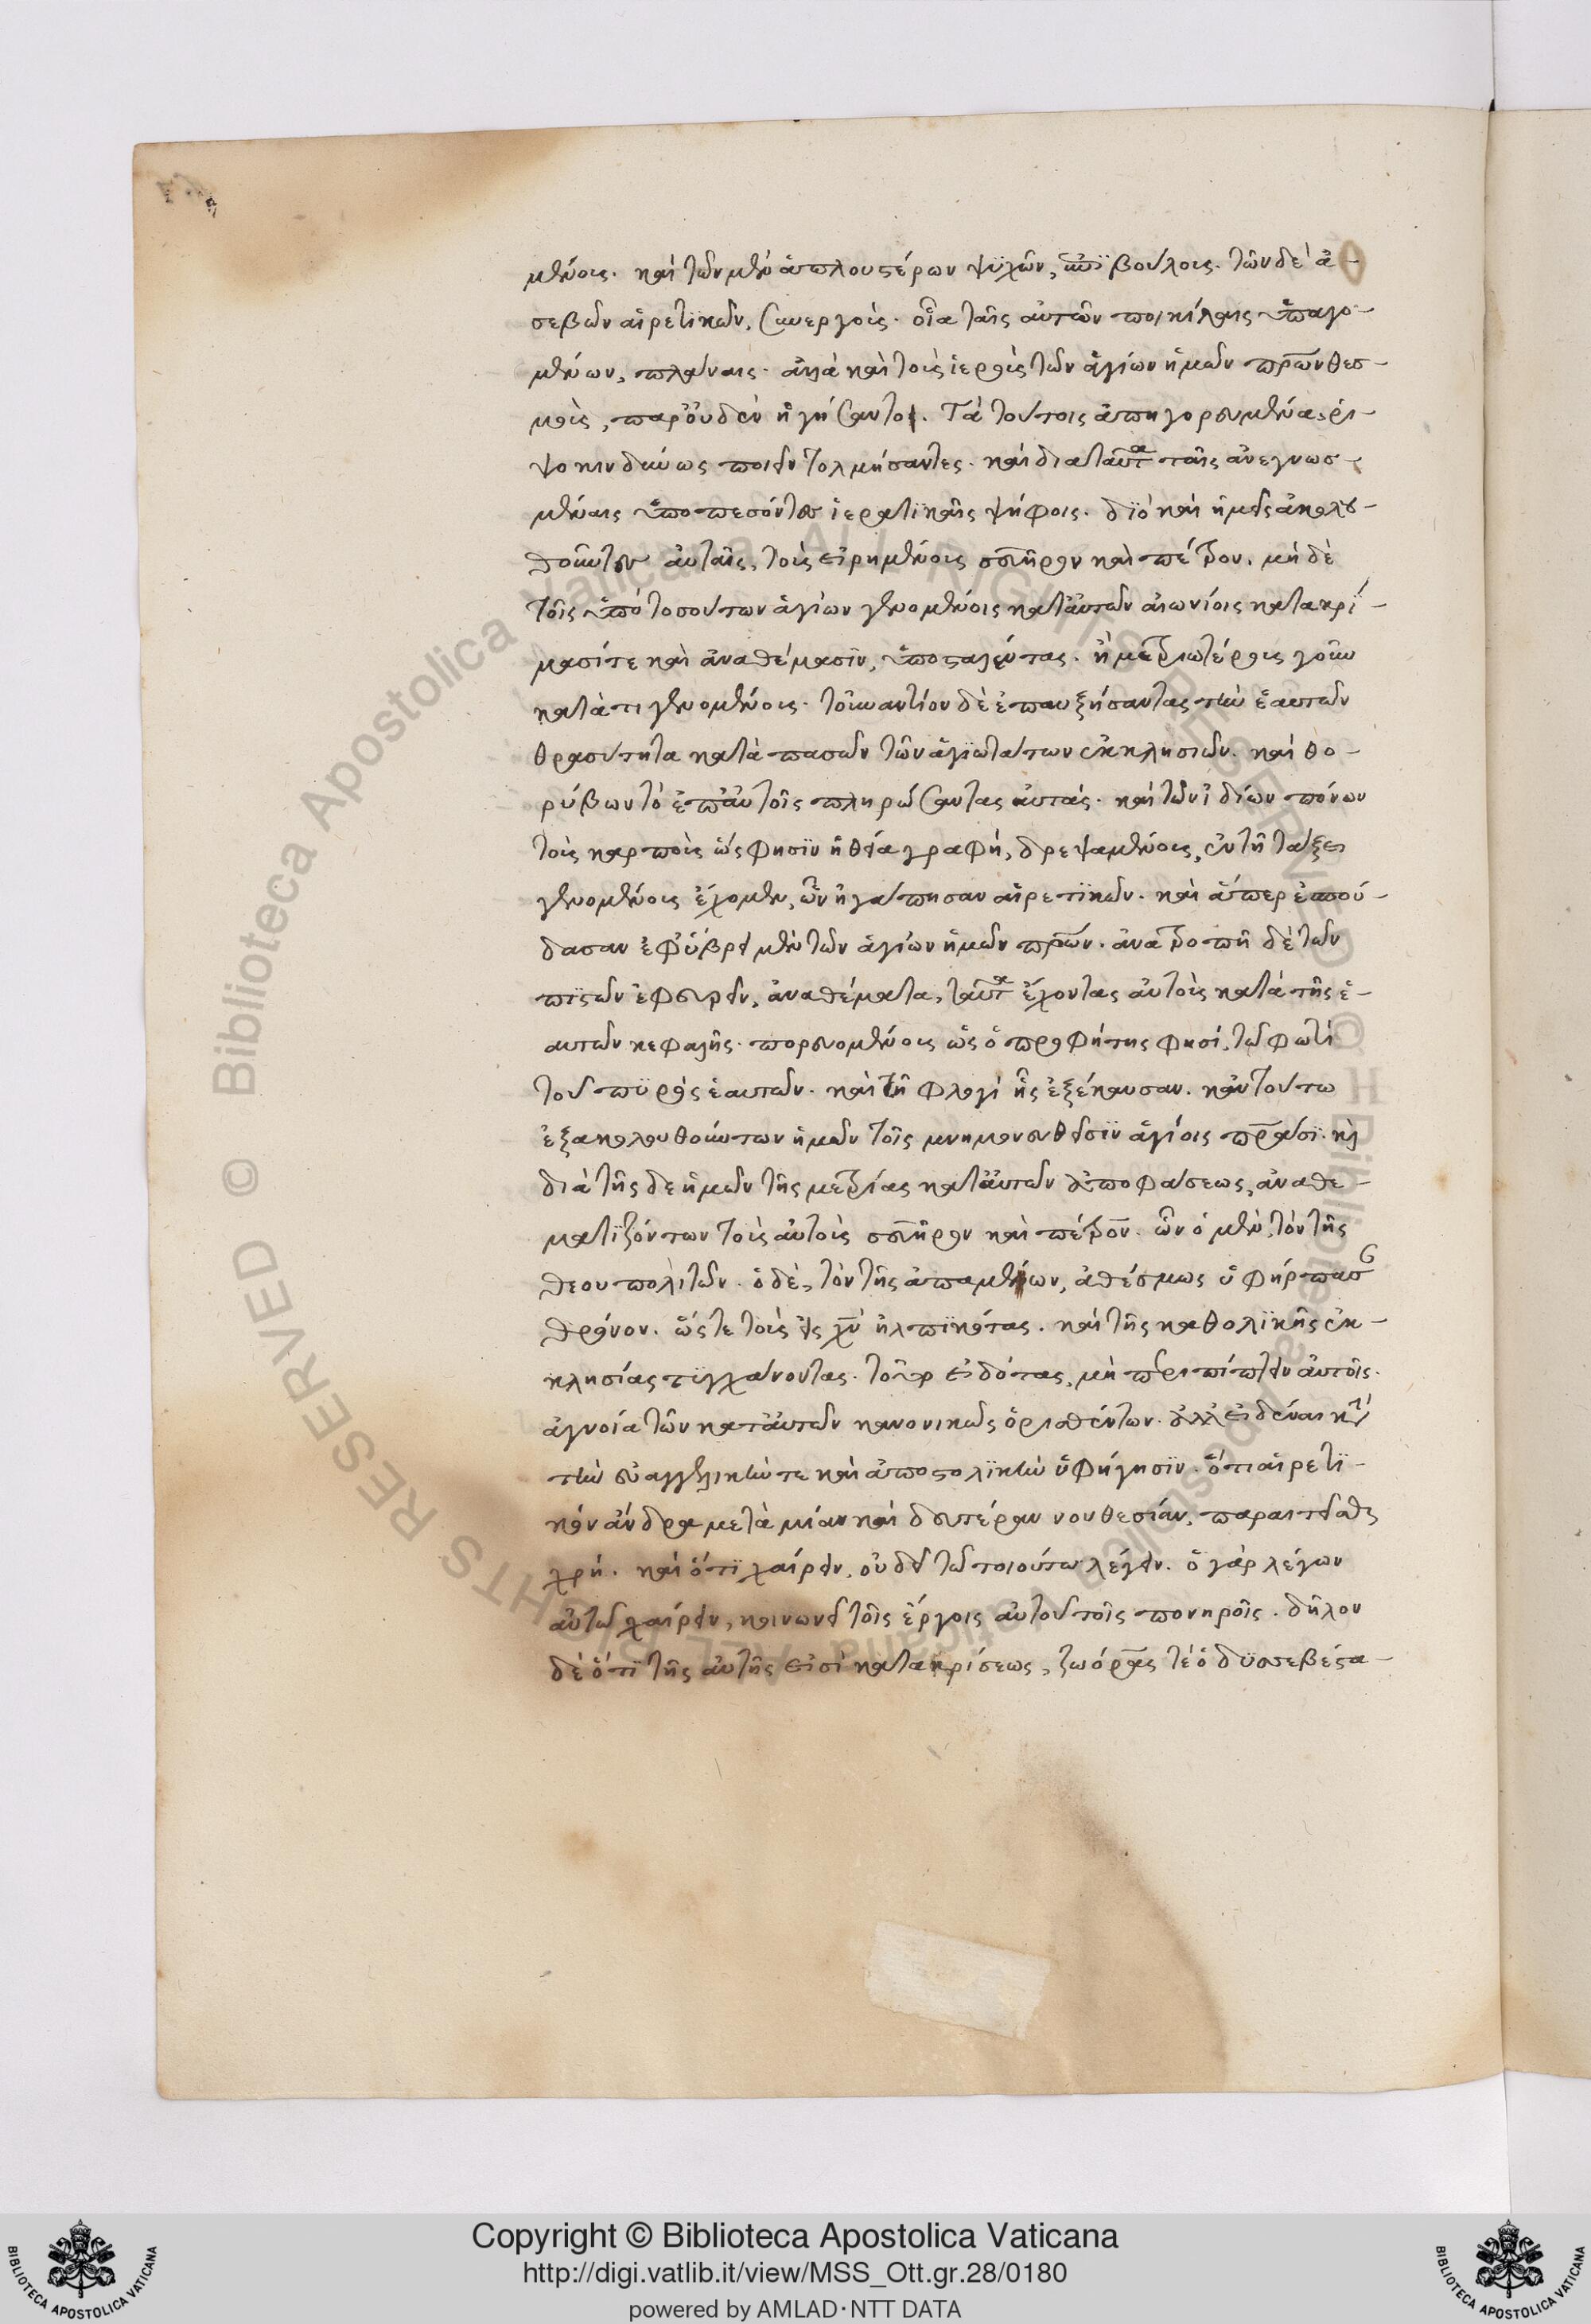 μένοις. καὶ τῶν μὲν ἁπλουστέρων ψϋχῶν, ἐπϊβούλοις. τῶν δὲ ἀ-
σεβῶν αἱρετϊκῶν, συνεργοὶς. οἷα ταῖς αὐτῶν ποικίλαις ὑπαγο-
μένων, πλάναις. ἀλλὰ καὶ τοὺς ἱεροὺς τῶν ἁγίων ἡμῶν πρων θεσ-
μοὺς, παρ' οὐδὲν ἡγήσαντο. Τὰ τούτοις ἀπηγορευμένα, ῥι-
ψοκινδύνως ποιεῖν τολμήσαντες. καὶ δια ταῦτα ταῖς ἀνεγνωσ-
μέναις ὑποπεσόντες ἱερατϊκαῖς ψήφοις. δϊὸ καὶ ἡμεῖς ἀκολου-
θοῦντες αὐταῖς, τοὺς εἰρημένους σευῆρον καὶ πέτρον. μὴ δὲ
τοῖς ὑπὸ τοσούτων ἁγίων γενομένοις κατ' αὐτῶν αἰωνίοις κατακρί-
μασί τε καὶ ἀναθέμασϊν, ὑποσταλέντας. ἢ μετριωτέρους γοῦν
κατά τι γενομένους. τοὐναντίον δὲ ἐπαυξήσαντας τὴν ἑαυτῶν
θρασύτητα κατὰ πασῶν τῶν ἁγϊωτάτων ἐκκλησιῶν. καὶ θο-
ρύβων τὸ ἐπ' αὐτοῖς πληρώσαντας αὐτάς. καὶ τῶν ἰδίων πόνων
τοὺς καρποὺς ὥς φησϊν ἡ θεία γραφή, δρεψαμένους, ἐν τῇ τάξει
γενομένους ἔχομεν, ὧν ἠγάπησαν αἱρετϊκῶν. καὶ ἅπερ ἐσπού-
δασαν ἐφ' ὕβρει μὲν τῶν ἁγίων ἡμῶν πρων. ἀνατροπῇ δὲ τῶν
πϊστῶν ἐφευρεῖν, ἀναθέματα, ταῦτα ἔχοντας αὐτοὺς κατὰ τῆς ἑ-
αυτῶν κεφαλῆς. πορευομένους ὡς ὁ προφήτης φησί, τῷ φωτὶ
τοῦ πϋρὸς ἑαυτῶν. καὶ τῇ φλογὶ ἧς ἐξέκαυσαν. κἀν τούτω
ἐξακολουθούντων ἡμῶν τοῖς μνημονευθεῖσϊν ἁγίοις πράσϊ. καὶ
διὰ τῆς δε ἡμῶν τῆς μετρίας κατ' αὐτῶν ἀποφάσεως, ἀναθε-
ματϊζόντων τοὺς αὐτοὺς σευῆρον καὶ πέτρον. ὧν ὁ μὲν, τὸν τῆς
θεουπολϊτῶν. ὁ δὲ, τὸν τῆς ἀπαμέων, ἀθέσμως ὑφήρπασε
θρόνον. ὥστε τοὺς εἰς χν ἠλπϊκότας. καὶ τῆς καθολϊκῆς ἐκ-
κλησίας τϋγχάνοντας. τοῦτο εἰδότας, μὴ περιπίπτειν αὐτοῖς.
ἀγνοία τῶν κατ' αὐτῶν κανονικῶς ὁρισθέντων. ἀλλ' εἰδέναι κατὰ
τὴν εὐαγγελικήν τε καὶ ἀποστολϊκὴν ὑφήγησϊν. ὅτι αἱρετϊ-
κὸν ἄνδρα μετὰ μίαν καὶ δευτέραν νουθεσίαν, παραιτεῖσθαι
χρή. καὶ ὅτϊ χαίρειν, οὐ δεῖ τῷ τοιούτω λέγειν. ὁ γὰρ λέγων
αὐτῷ χαίρειν, κοινωνεῖ τοῖς ἔργοις αὐτοῦ τοῖς πονηροῖς. δῆλον
δὲ ὅτϊ τῆς αὐτῆς εἰσὶ κατακρίσεως, ζωόρας τέ ὁ δϋσσεβέστα-
Copyright © Biblioteca Apostolica Vaticana
http://digi.vatlib.it/view/MSS_Ott.gr.28/0180
powered by AMLAD·NTT DATA
BIBLIOTECA APOSTOLICA VATICANA
BIBLIOTECA APOSTOLICA VATICANA